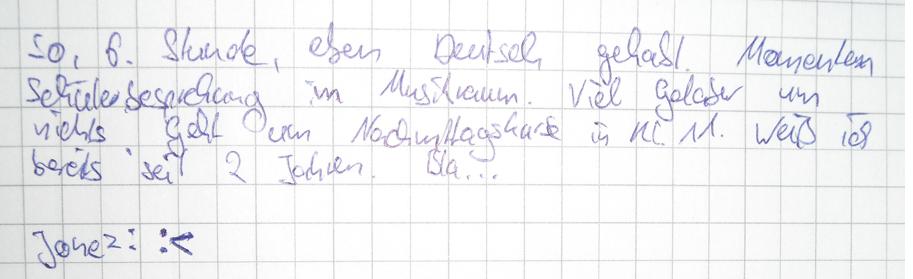 So, 6. Stunde, eben Deutsch gehabt. Momentan
Schülerbesprechung im Musikraum. Viel Gelaber um
nichts Geht um Nachmittagskurse in Kl. 11. Weiß ich
bereits seit 2 Jahren. Bla...
Jonez: :<